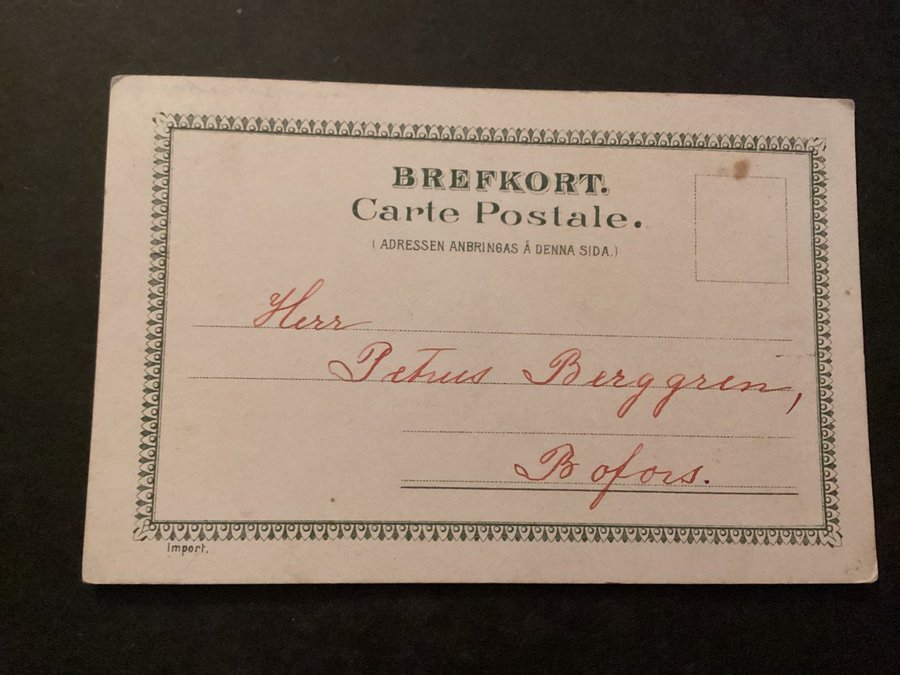 BREFKORT.
Carte Postale.
(ADRESSEN ANBRINGAS Å DENNA SIDA.)
Herr
Petrus Berggren,
Bofors.
Import.